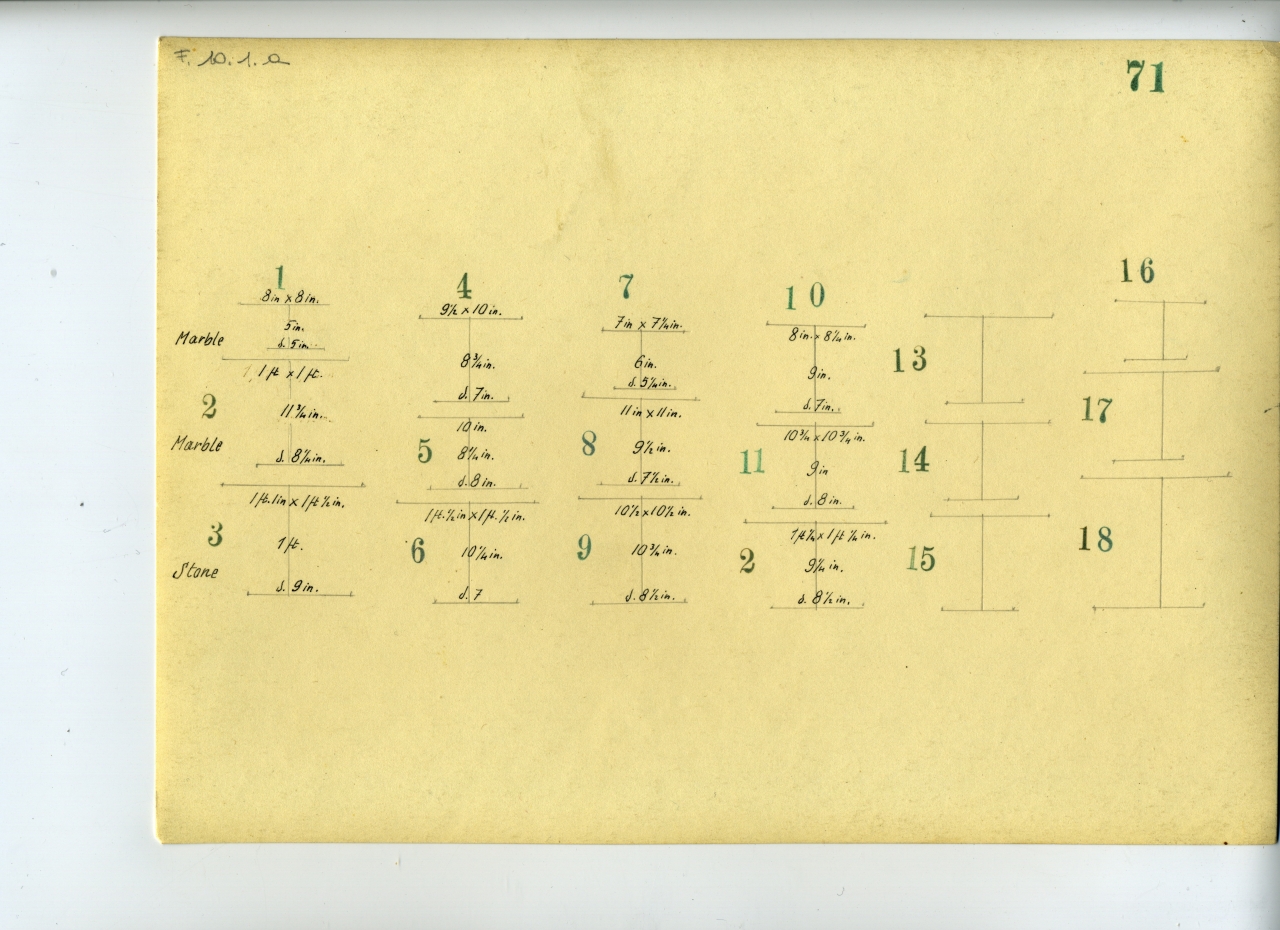 F. 10. 1. a
71
1
8in x 8in.
Marble
5in.
d. 5in.
1ft x 1ft.
2
11 3/4in.
Marble
d. 8 1/4in.
1ft.1in x 1ft 1/2in.
3
1ft.
Stone
d. 9in.
4
9 1/2 x 10in.
8 3/4in.
d. 7in.
10in.
5
8 1/4in.
d. 8in.
1ft. 1/2in x 1ft. 1/2in.
6
10 1/4in.
d. 7
7
7in x 7 1/4in.
6in.
d. 5 1/4in.
11in x 11in.
8
9 1/2in.
d. 7 1/2in.
10 1/2 x 10 1/2in.
9
10 3/4in.
d. 8 1/2in.
10
8in. x 8 1/4in.
9in.
d. 7in.
10 3/4 x 10 3/4in.
11
9in
d. 8in.
1ft 1/4 x 1ft 1/4in.
2
9 1/4in.
d. 8 1/2in.
13
14
15
16
17
18